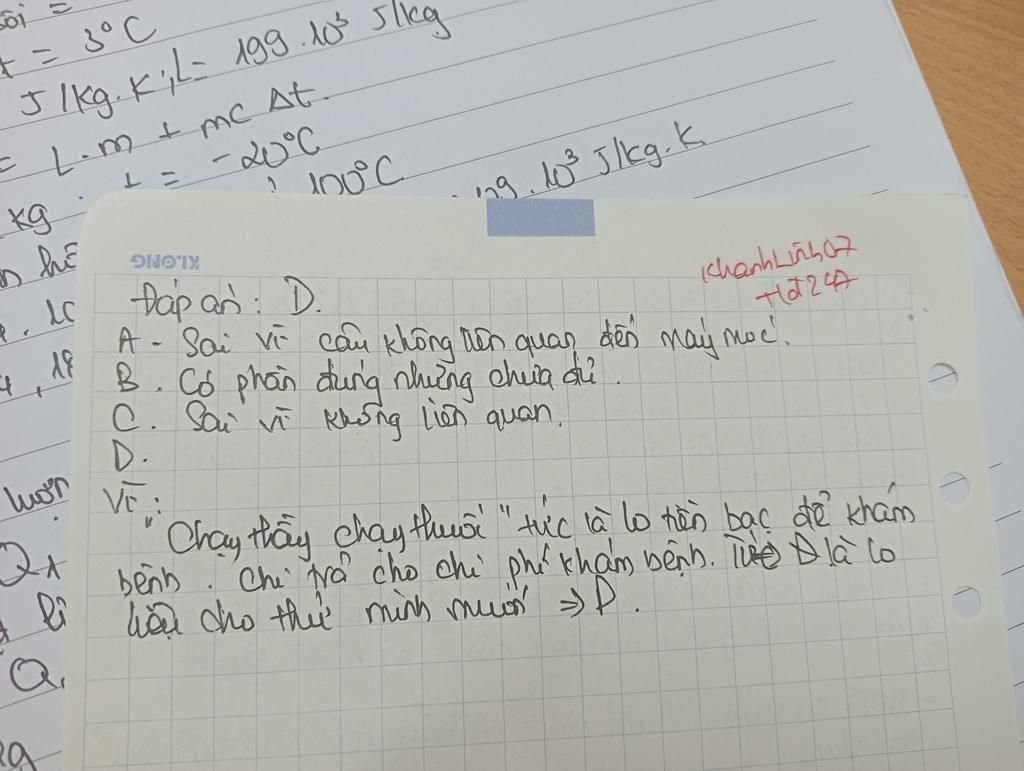 = 3°C
J/kg.K; L = 199.10³ J/kg
= L.m + mc Δt.
t = -20°C
100°C
.10³ J/kg.K
kg
KLONG
KhanhLinh07
Hđ24
Đáp án: D.
A - Sai vì câu không liên quan đến máy móc.
B. Có phần đúng nhưng chưa đủ.
C. Sai vì không liên quan.
D.
Vì:
"Chạy thầy chạy thuốc" tức là lo tiền bạc để khám
bệnh. Chi trả cho chi phí khám bệnh. D là lo
liệu cho thứ mình muốn => D.